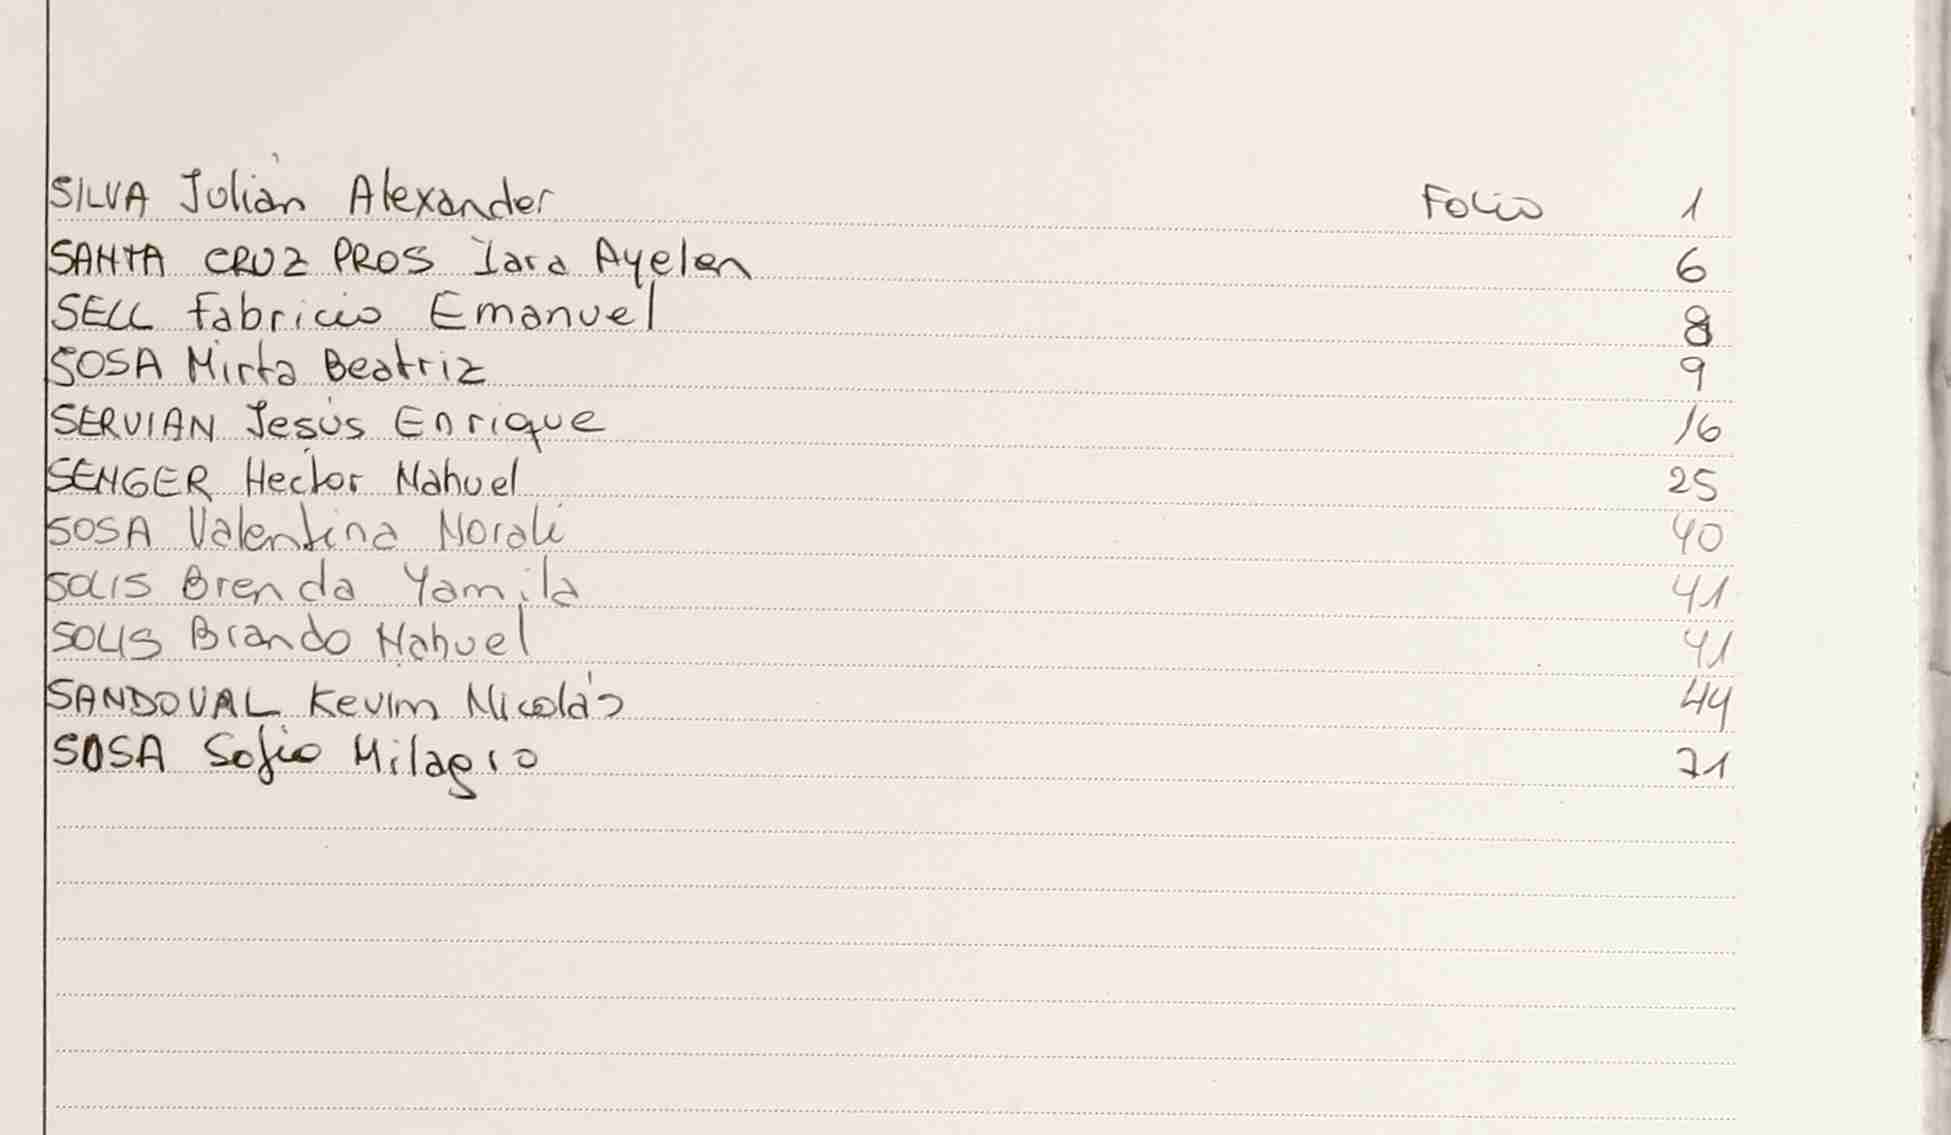 SILVA Julián Alexander Folio 1
SANTA CRUZ PROS Iara Ayelen 6
SELL Fabricio Emanuel 8
SOSA Mirta Beatriz 9
SERVIAN Jesús Enrique 16
SENGER Hector Nahuel 25
SOSA Valentina Norali 40
SOLIS Brenda Yamila 41
SOLIS Brando Nahuel 41
SANDOVAL Kevim Nicolás 44
SOSA Sofia Milagro 71